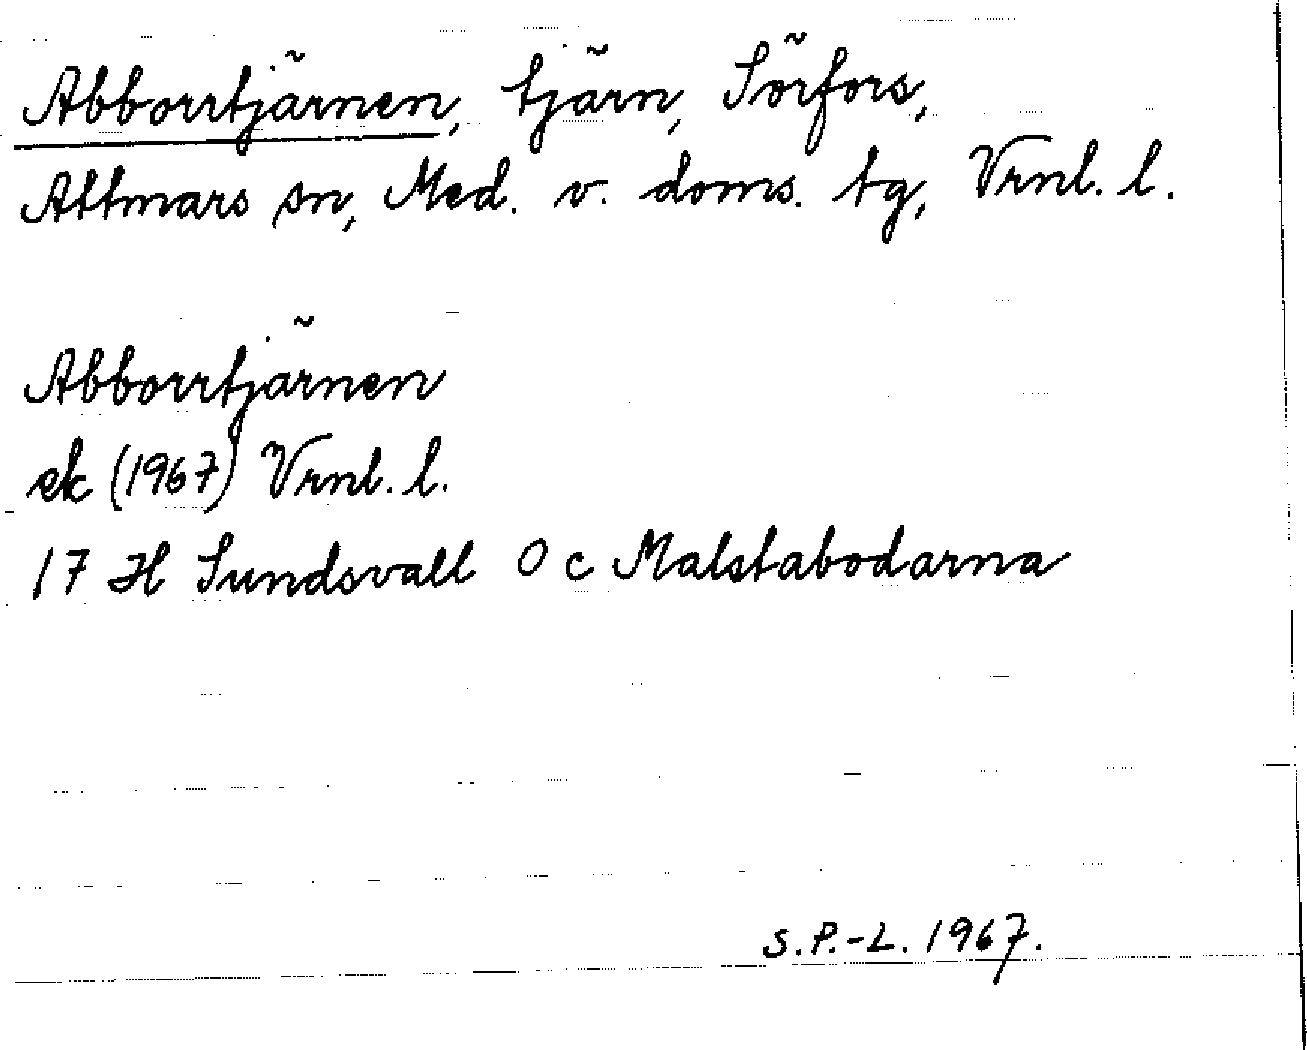 Abborrtjärnen, tjärn, Sörfors,
Attmars sn, Med. v. doms. tg, Vrnl. l.
Abborrtjärnen
ek (1967) Vrnl. l.
17 H Sundsvall 0 c Malstabodarna
S.P.-L. 1967.